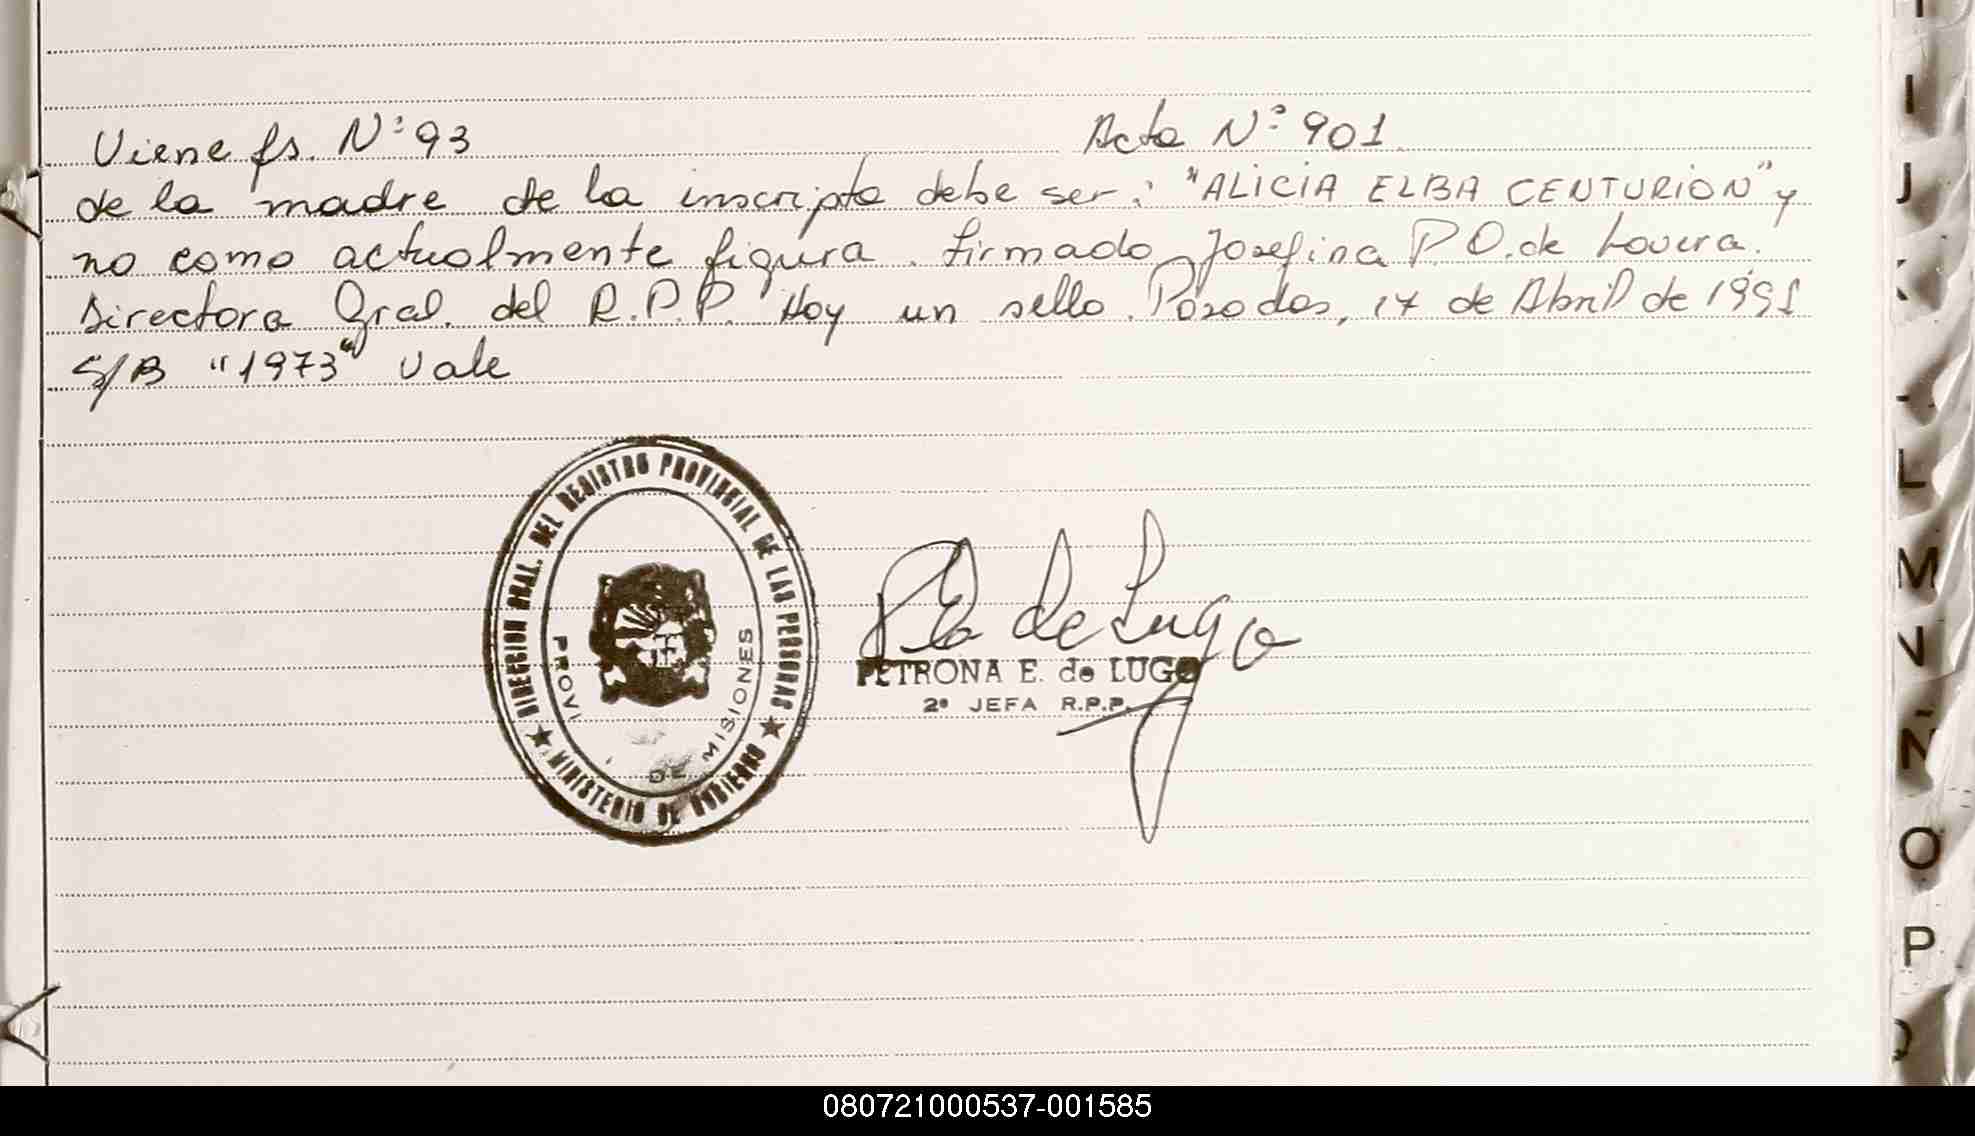 Viene fs. Nº 93 Acta Nº 901
de la madre de la inscripta debe ser: "ALICIA ELBA CENTURION" y
no como actualmente figura. Firmado Josefina P.O. de Lovera.
Directora Gral. del R.P.P. Hay un sello. Posadas, 17 de Abril de 1991
S/B "1973" Vale
DIRECCION GRAL. DEL REGISTRO PROVINCIAL DE LAS PERSONAS
MINISTERIO DE GOBIERNO
PROVI DE MISIONES
de Lugo
PETRONA E. de LUGO
2º JEFA R.P.P.
I
J
K
L
M
N
Ñ
O
P
080721000537-001585